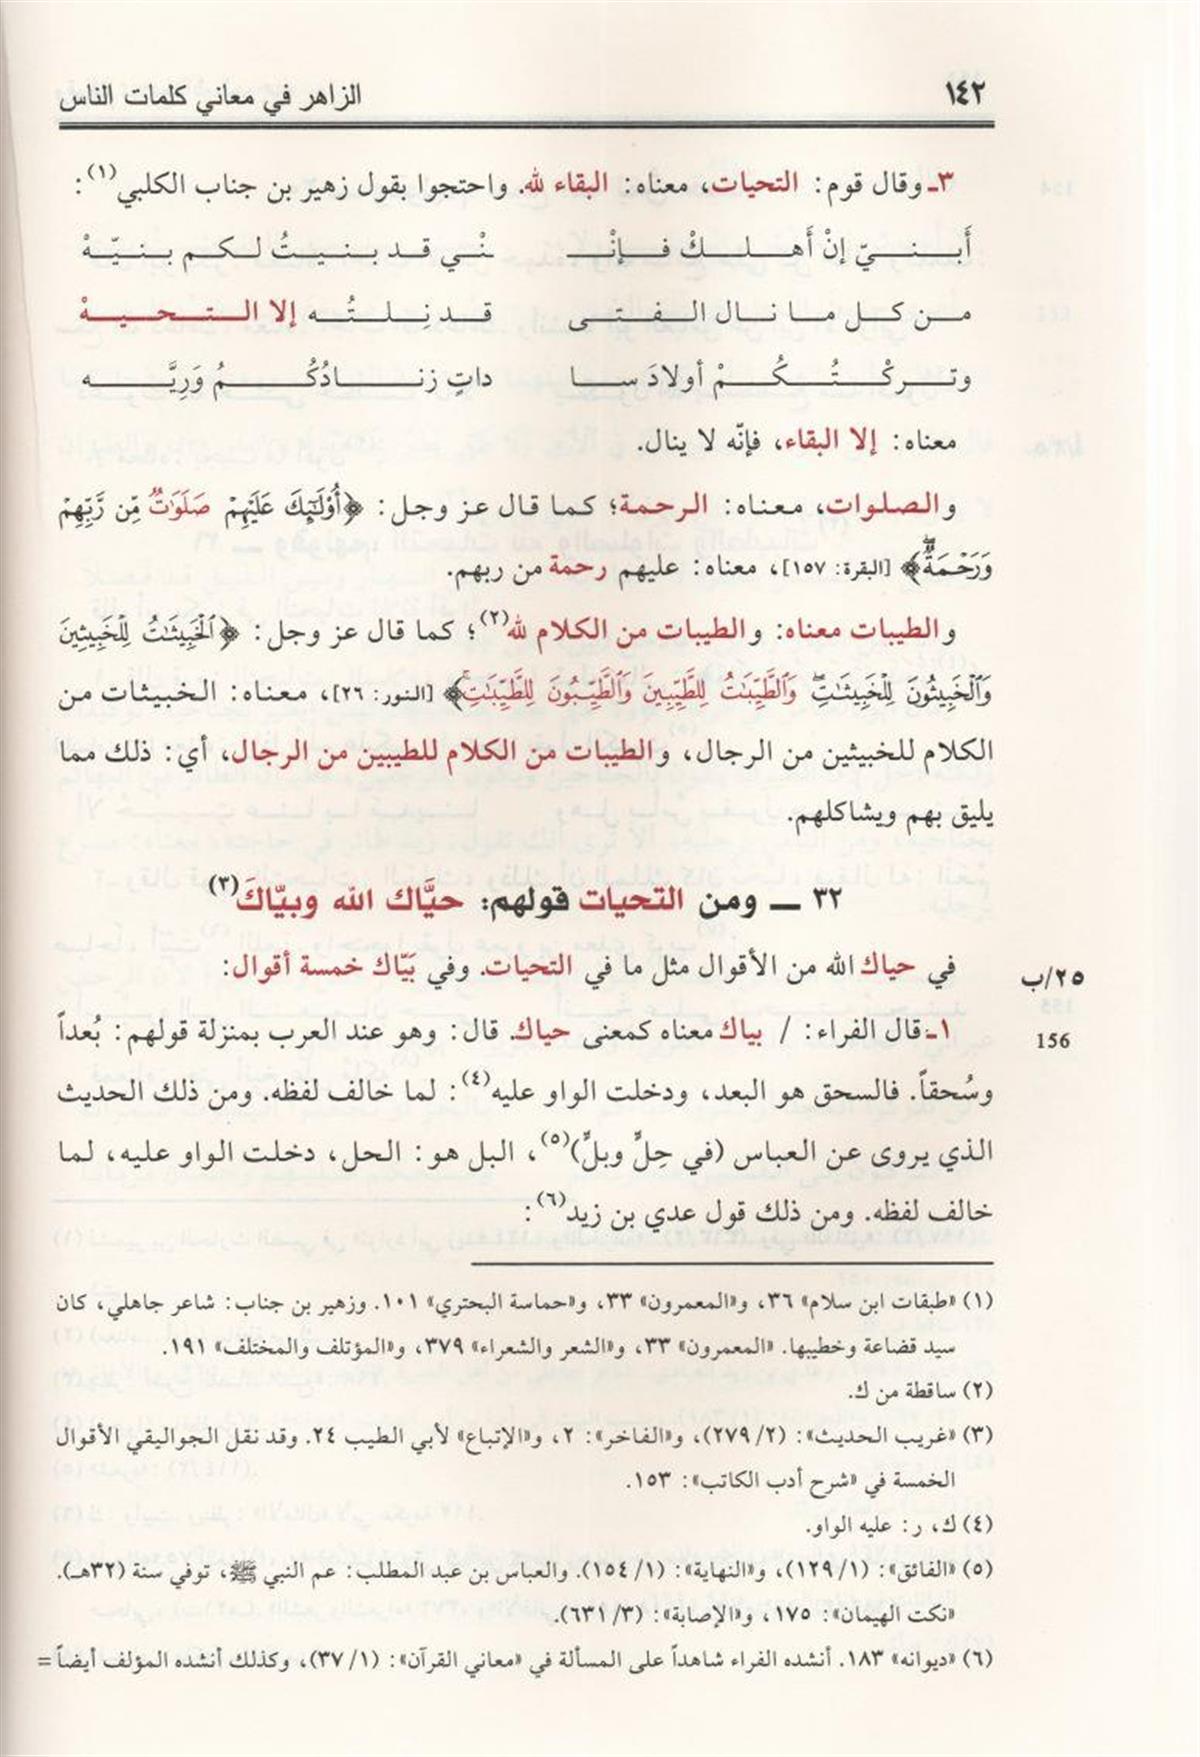 ١٤٢ الزاهر في معاني كلمات الناس
٣ـ وقال قوم: التحيات، معناه: البقاء لله. واحتجوا بقول زهير بن جناب الكلبي(١):
أَبنيّ إنْ أهلكْ فإنْـ ـنْي قد بنيتُ لكم بنيّهْ
من كل ما نال الفتى قد نِلتُه إلا التحيهْ
وتركْتُكُمْ أولادَ سا داتٍ زنادُكُمُ وَرِيَّه
معناه: إلا البقاء، فإنّه لا ينال.
والصلوات، معناه: الرحمة؛ كما قال عز وجل: ﴿أُوْلَٰٓئِكَ عَلَيْهِمْ صَلَوَٰتٌ مِّن رَّبِّهِمْ
وَرَحْمَةٌ﴾ [البقرة: ١٥٧]، معناه: عليهم رحمة من ربهم.
والطيبات معناه: والطيبات من الكلام لله(٢)؛ كما قال عز وجل: ﴿ٱلْخَبِيثَٰتُ لِلْخَبِيثِينَ
وَٱلْخَبِيثُونَ لِلْخَبِيثَٰتِ وَٱلطَّيِّبَٰتُ لِلطَّيِّبِينَ وَٱلطَّيِّبُونَ لِلطَّيِّبَٰتِ﴾ [النور: ٢٦]، معناه: الخبيثات من
الكلام للخبيثين من الرجال، والطيبات من الكلام للطيبين من الرجال، أي: ذلك مما
يليق بهم ويشاكلهم.
٣٢ ــ ومن التحيات قولهم: حيَّاك الله وبيّاكَ(٣)
في حياك الله من الأقوال مثل ما في التحيات. وفي بَيّاك خمسة أقوال:
٢٥/ب
١ـ قال الفراء: / بياك معناه كمعنى حياك. قال: وهو عند العرب بمنزلة قولهم: بُعداً
156
وسُحقاً. فالسحق هو البعد، ودخلت الواو عليه(٤): لما خالف لفظه. ومن ذلك الحديث
الذي يروى عن العباس (في حِلٍّ وبلٍّ)(٥)، البل هو: الحل، دخلت الواو عليه، لما
خالف لفظه. ومن ذلك قول عدي بن زيد(٦):
(١) «طبقات ابن سلام» ٣٦، و«المعمرون» ٣٣، و«حماسة البحتري» ١٠١. وزهير بن جناب: شاعر جاهلي، كان
سيد قضاعة وخطيبها. «المعمرون» ٣٣، و«الشعر والشعراء» ٣٧٩، و«المؤتلف والمختلف» ١٩١.
(٢) ساقطة من ك.
(٣) «غريب الحديث»: (٢/ ٢٧٩)، و«الفاخر»: ٢، و«الإتباع» لأبي الطيب ٢٤. وقد نقل الجواليقي الأقوال
الخمسة في «شرح أدب الكاتب»: ١٥٣.
(٤) ك، ر: عليه الواو.
(٥) «الفائق»: (١/ ١٢٩)، و«النهاية»: (١/ ١٥٤). والعباس بن عبد المطلب: عم النبي ﷺ، توفي سنة (٣٢هـ).
«نكت الهيمان»: ١٧٥، و«الإصابة»: (٣/ ٦٣١).
(٦) «ديوانه» ١٨٣. أنشده الفراء شاهداً على المسألة في «معاني القرآن»: (١/ ٣٧)، وكذلك أنشده المؤلف أيضاً =